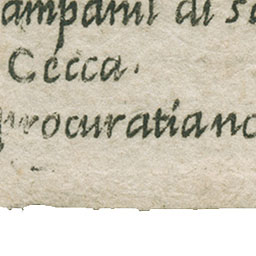 ampanil di s
Cecca.
procuratianc